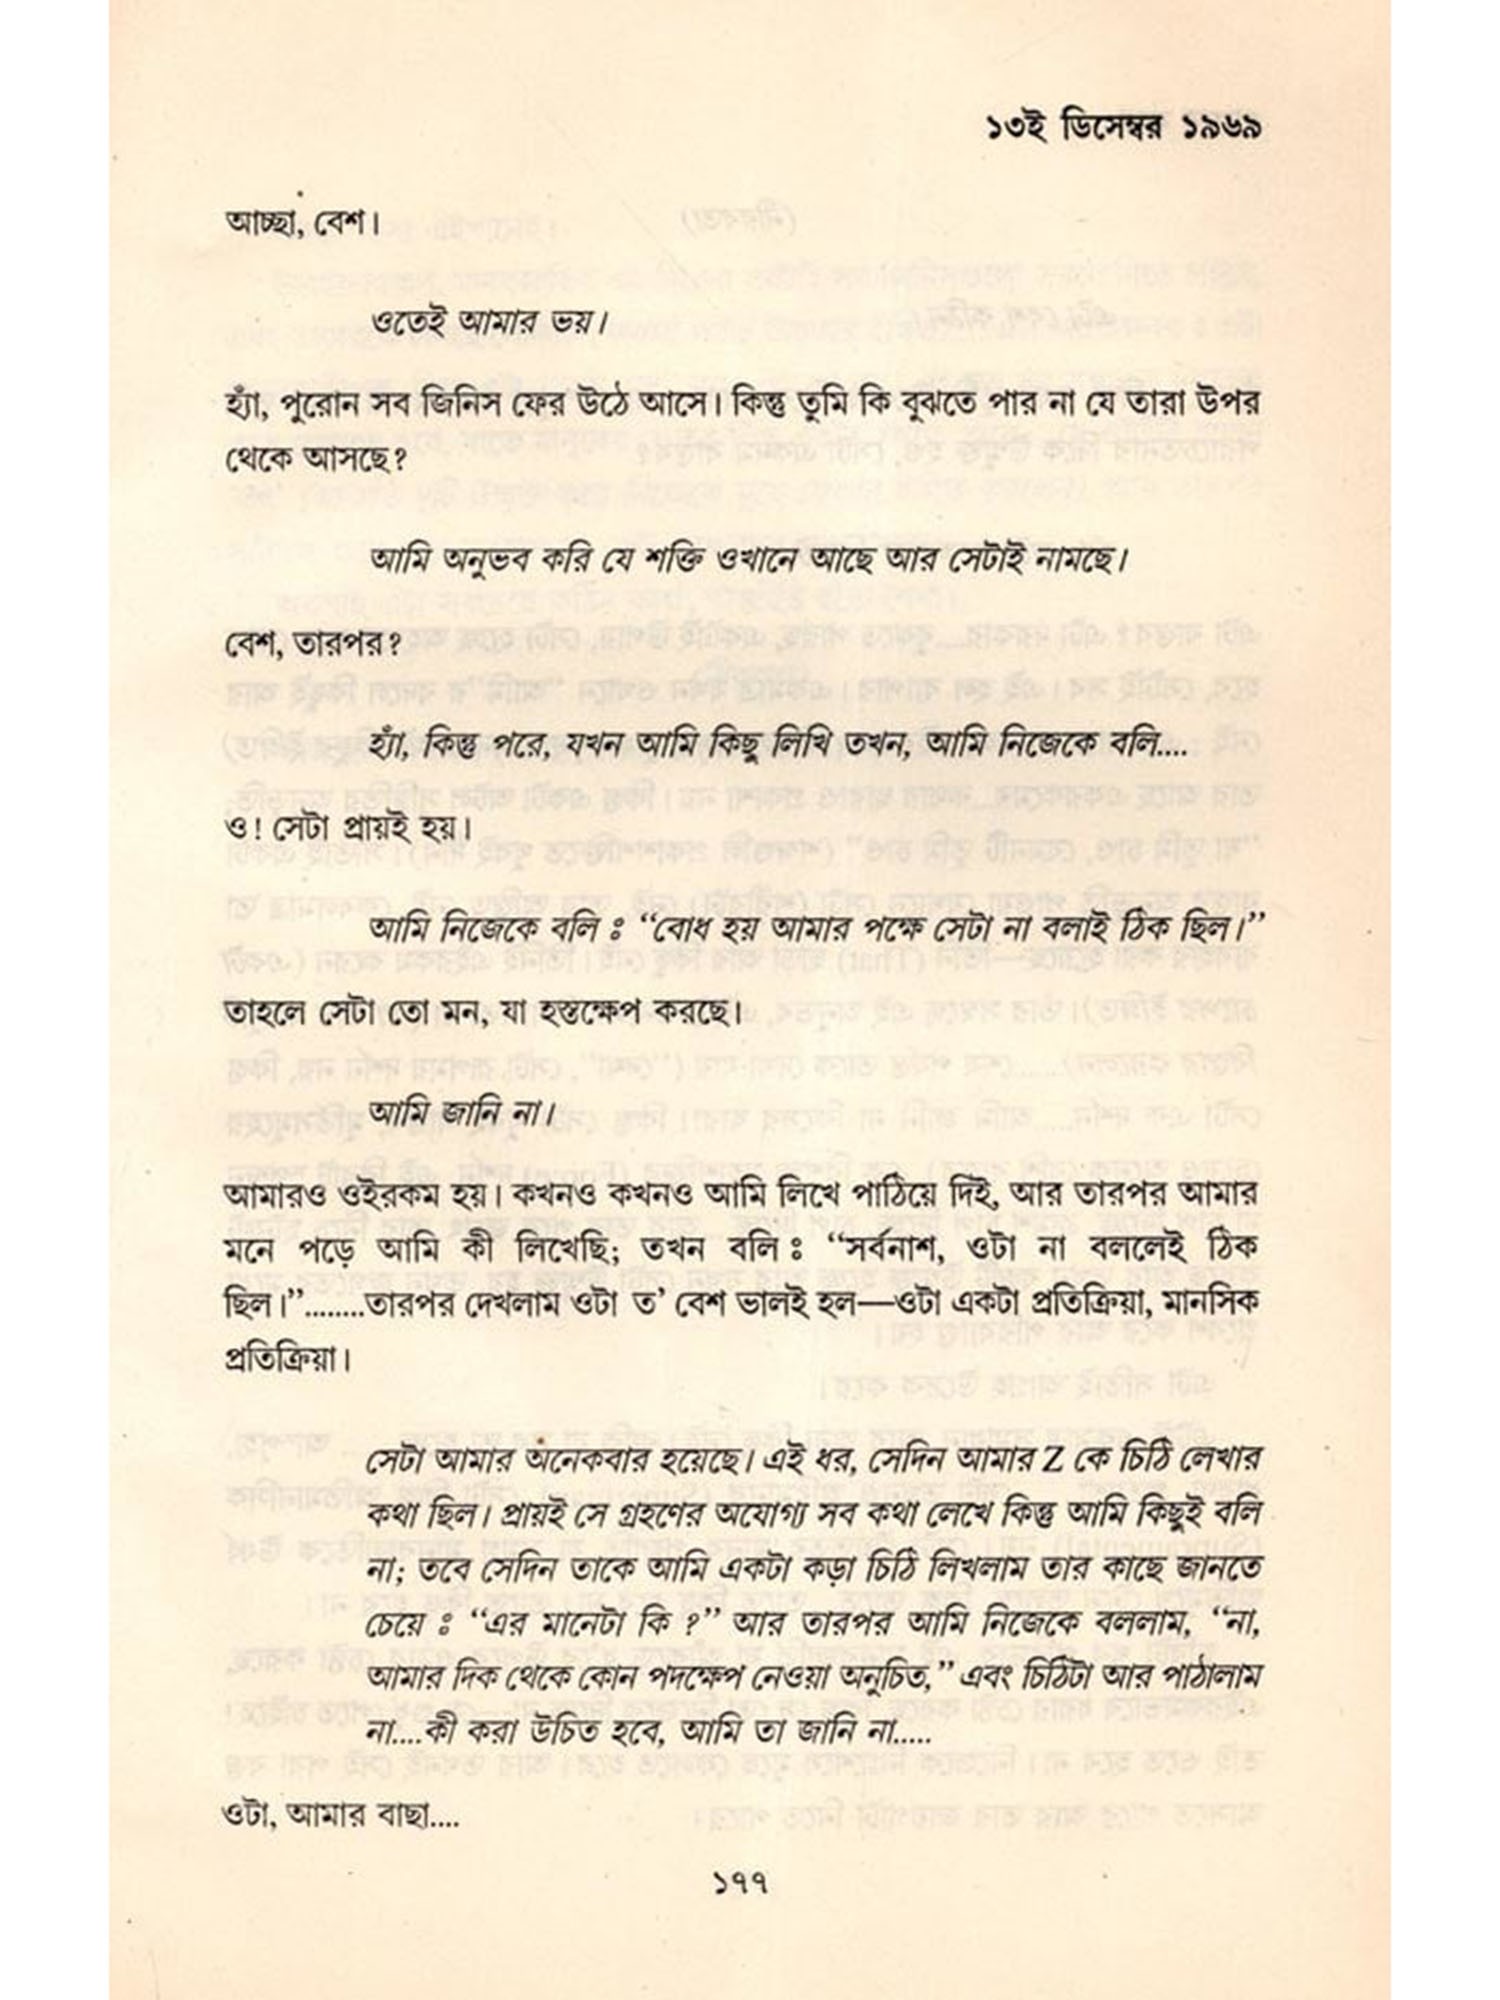 ১৩ই ডিসেম্বর ১৯৬৯
আচ্ছা, বেশ।
ওতেই আমার ভয়।
হ্যাঁ, পুরোন সব জিনিস ফের উঠে আসে। কিন্তু তুমি কি বুঝতে পার না যে তারা উপর
থেকে আসছে?
আমি অনুভব করি যে শক্তি ওখানে আছে আর সেটাই নামছে।
বেশ, তারপর?
হ্যাঁ, কিন্তু পরে, যখন আমি কিছু লিখি তখন, আমি নিজেকে বলি....
ও! সেটা প্রায়ই হয়।
আমি নিজেকে বলি ঃ “বোধ হয় আমার পক্ষে সেটা না বলাই ঠিক ছিল।”
তাহলে সেটা তো মন, যা হস্তক্ষেপ করছে।
আমি জানি না।
আমারও ওইরকম হয়। কখনও কখনও আমি লিখে পাঠিয়ে দিই, আর তারপর আমার
মনে পড়ে আমি কী লিখেছি; তখন বলি ঃ “সর্বনাশ, ওটা না বললেই ঠিক
ছিল।”........তারপর দেখলাম ওটা ত’ বেশ ভালই হল—ওটা একটা প্রতিক্রিয়া, মানসিক
প্রতিক্রিয়া।
সেটা আমার অনেকবার হয়েছে। এই ধর, সেদিন আমার Z কে চিঠি লেখার
কথা ছিল। প্রায়ই সে গ্রহণের অযোগ্য সব কথা লেখে কিন্তু আমি কিছুই বলি
না; তবে সেদিন তাকে আমি একটা কড়া চিঠি লিখলাম তার কাছে জানতে
চেয়ে ঃ “এর মানেটা কি ?” আর তারপর আমি নিজেকে বললাম, “না,
আমার দিক থেকে কোন পদক্ষেপ নেওয়া অনুচিত,” এবং চিঠিটা আর পাঠালাম
না....কী করা উচিত হবে, আমি তা জানি না.....
ওটা, আমার বাছা....
১৭৭